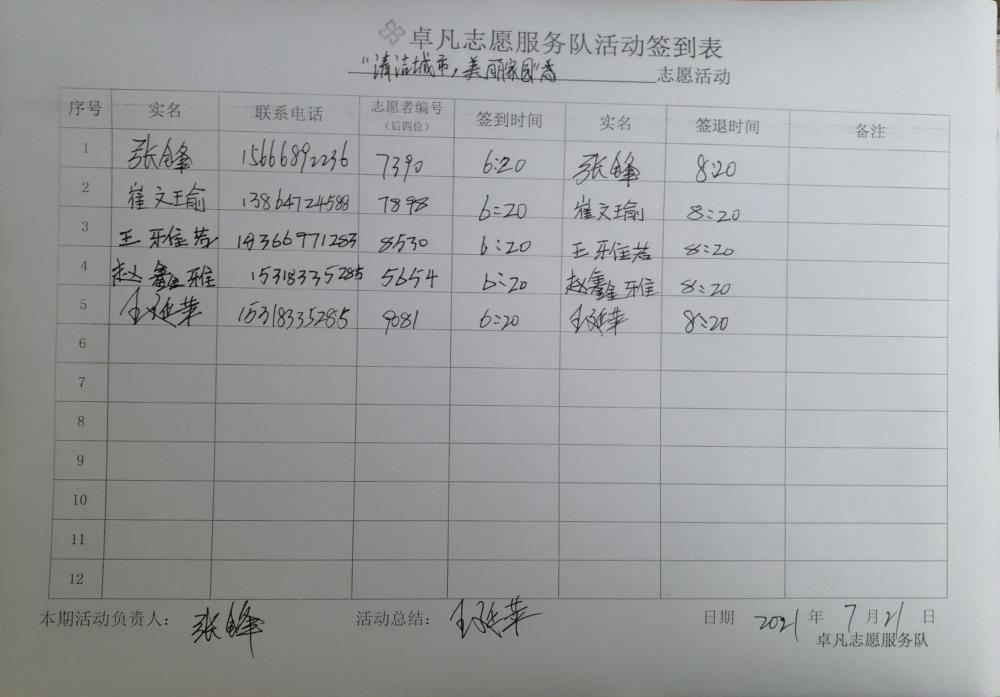 卓凡志愿服务队活动签到表
“清洁城市，美丽家园” 志愿活动
序号 实名 联系电话 志愿者编号（后四位） 签到时间 实名 签退时间 备注
1 张锋 15666892236 7390 6:20 张锋 8:20
2 崔文瑜 13864724588 7898 6:20 崔文瑜 8:20
3 王乐佳茗 18366971283 8530 6:20 王乐佳茗 8:20
4 赵鑫雅 15318335285 5654 6:20 赵鑫雅 8:20
5 15318335285 9081 6:20 8:20
6
7
8
9
10
11
12
本期活动负责人： 张锋 活动总结： 日期 2021 年 7 月 21 日
卓凡志愿服务队